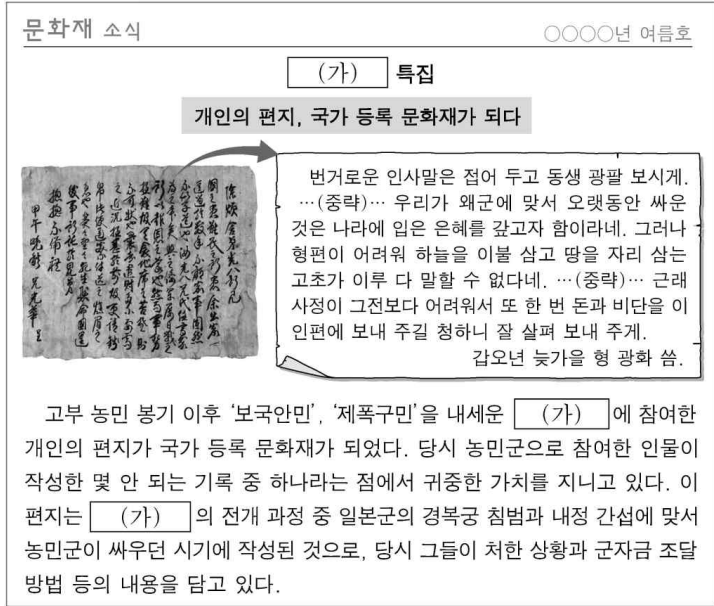 문화재 소식
○○○○년 여름호
(가) 특집
개인의 편지, 국가 등록 문화재가 되다
번거로운 인사말은 접어 두고 동생 광팔 보시게.
…(중략)… 우리가 왜군에 맞서 오랫동안 싸운
것은 나라에 입은 은혜를 갚고자 함이라네. 그러나
형편이 어려워 하늘을 이불 삼고 땅을 자리 삼는
고초가 이루 다 말할 수 없다네. …(중략)… 근래
사정이 그전보다 어려워서 또 한 번 돈과 비단을 이
인편에 보내 주길 청하니 잘 살펴 보내 주게.
갑오년 늦가을 형 광화 씀.
고부 농민 봉기 이후 ‘보국안민’, ‘제폭구민’을 내세운 (가) 에 참여한
개인의 편지가 국가 등록 문화재가 되었다. 당시 농민군으로 참여한 인물이
작성한 몇 안 되는 기록 중 하나라는 점에서 귀중한 가치를 지니고 있다. 이
편지는 (가) 의 전개 과정 중 일본군의 경복궁 침범과 내정 간섭에 맞서
농민군이 싸우던 시기에 작성된 것으로, 당시 그들이 처한 상황과 군자금 조달
방법 등의 내용을 담고 있다.